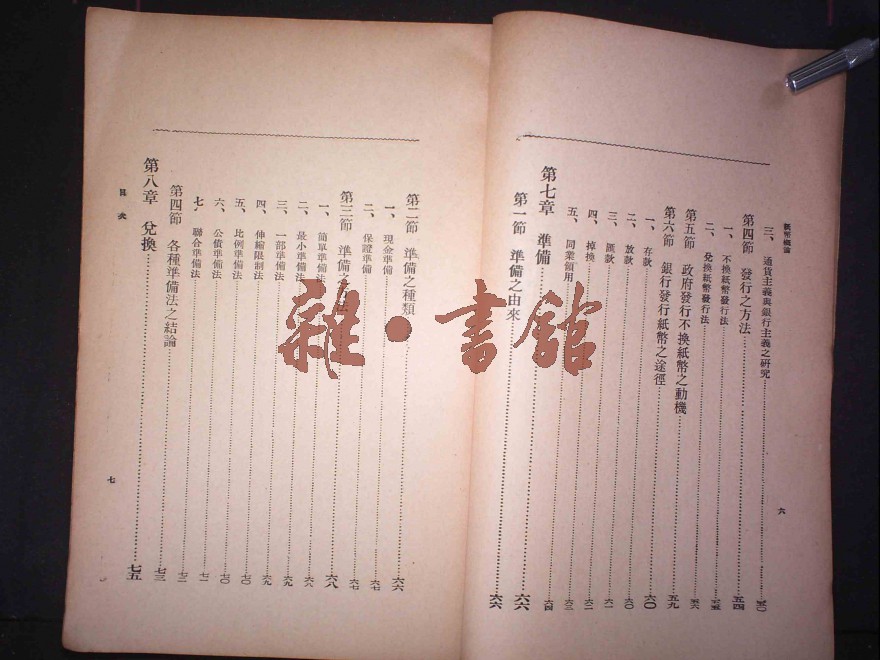 紙幣概論
三、通貨主義與銀行主義之研究 五〇
第四節 發行之方法 五四
一、不換紙幣發行法 五五
二、兌換紙幣發行法 五六
第五節 政府發行不換紙幣之動機 五九
第六節 銀行發行紙幣之途徑 六〇
一、存款 六〇
二、放款 六〇
三、匯款 六一
四、掉換 六二
五、同業領用 六三
六四
第七章 準備 六六
第一節 準備之由來 六六
六
第二節 準備之種類 六六
一、現金準備 六七
二、保證準備 六七
第三節 準備之方法 六八
一、簡單準備法 六八
二、最小準備法 六九
三、一部準備法 六九
四、伸縮限制法 六九
五、比例準備法 七〇
六、公債準備法 七〇
七、聯合準備法 七一
第四節 各種準備法之結論 七三
第八章 兌換 七五
目次
七
雜·書館